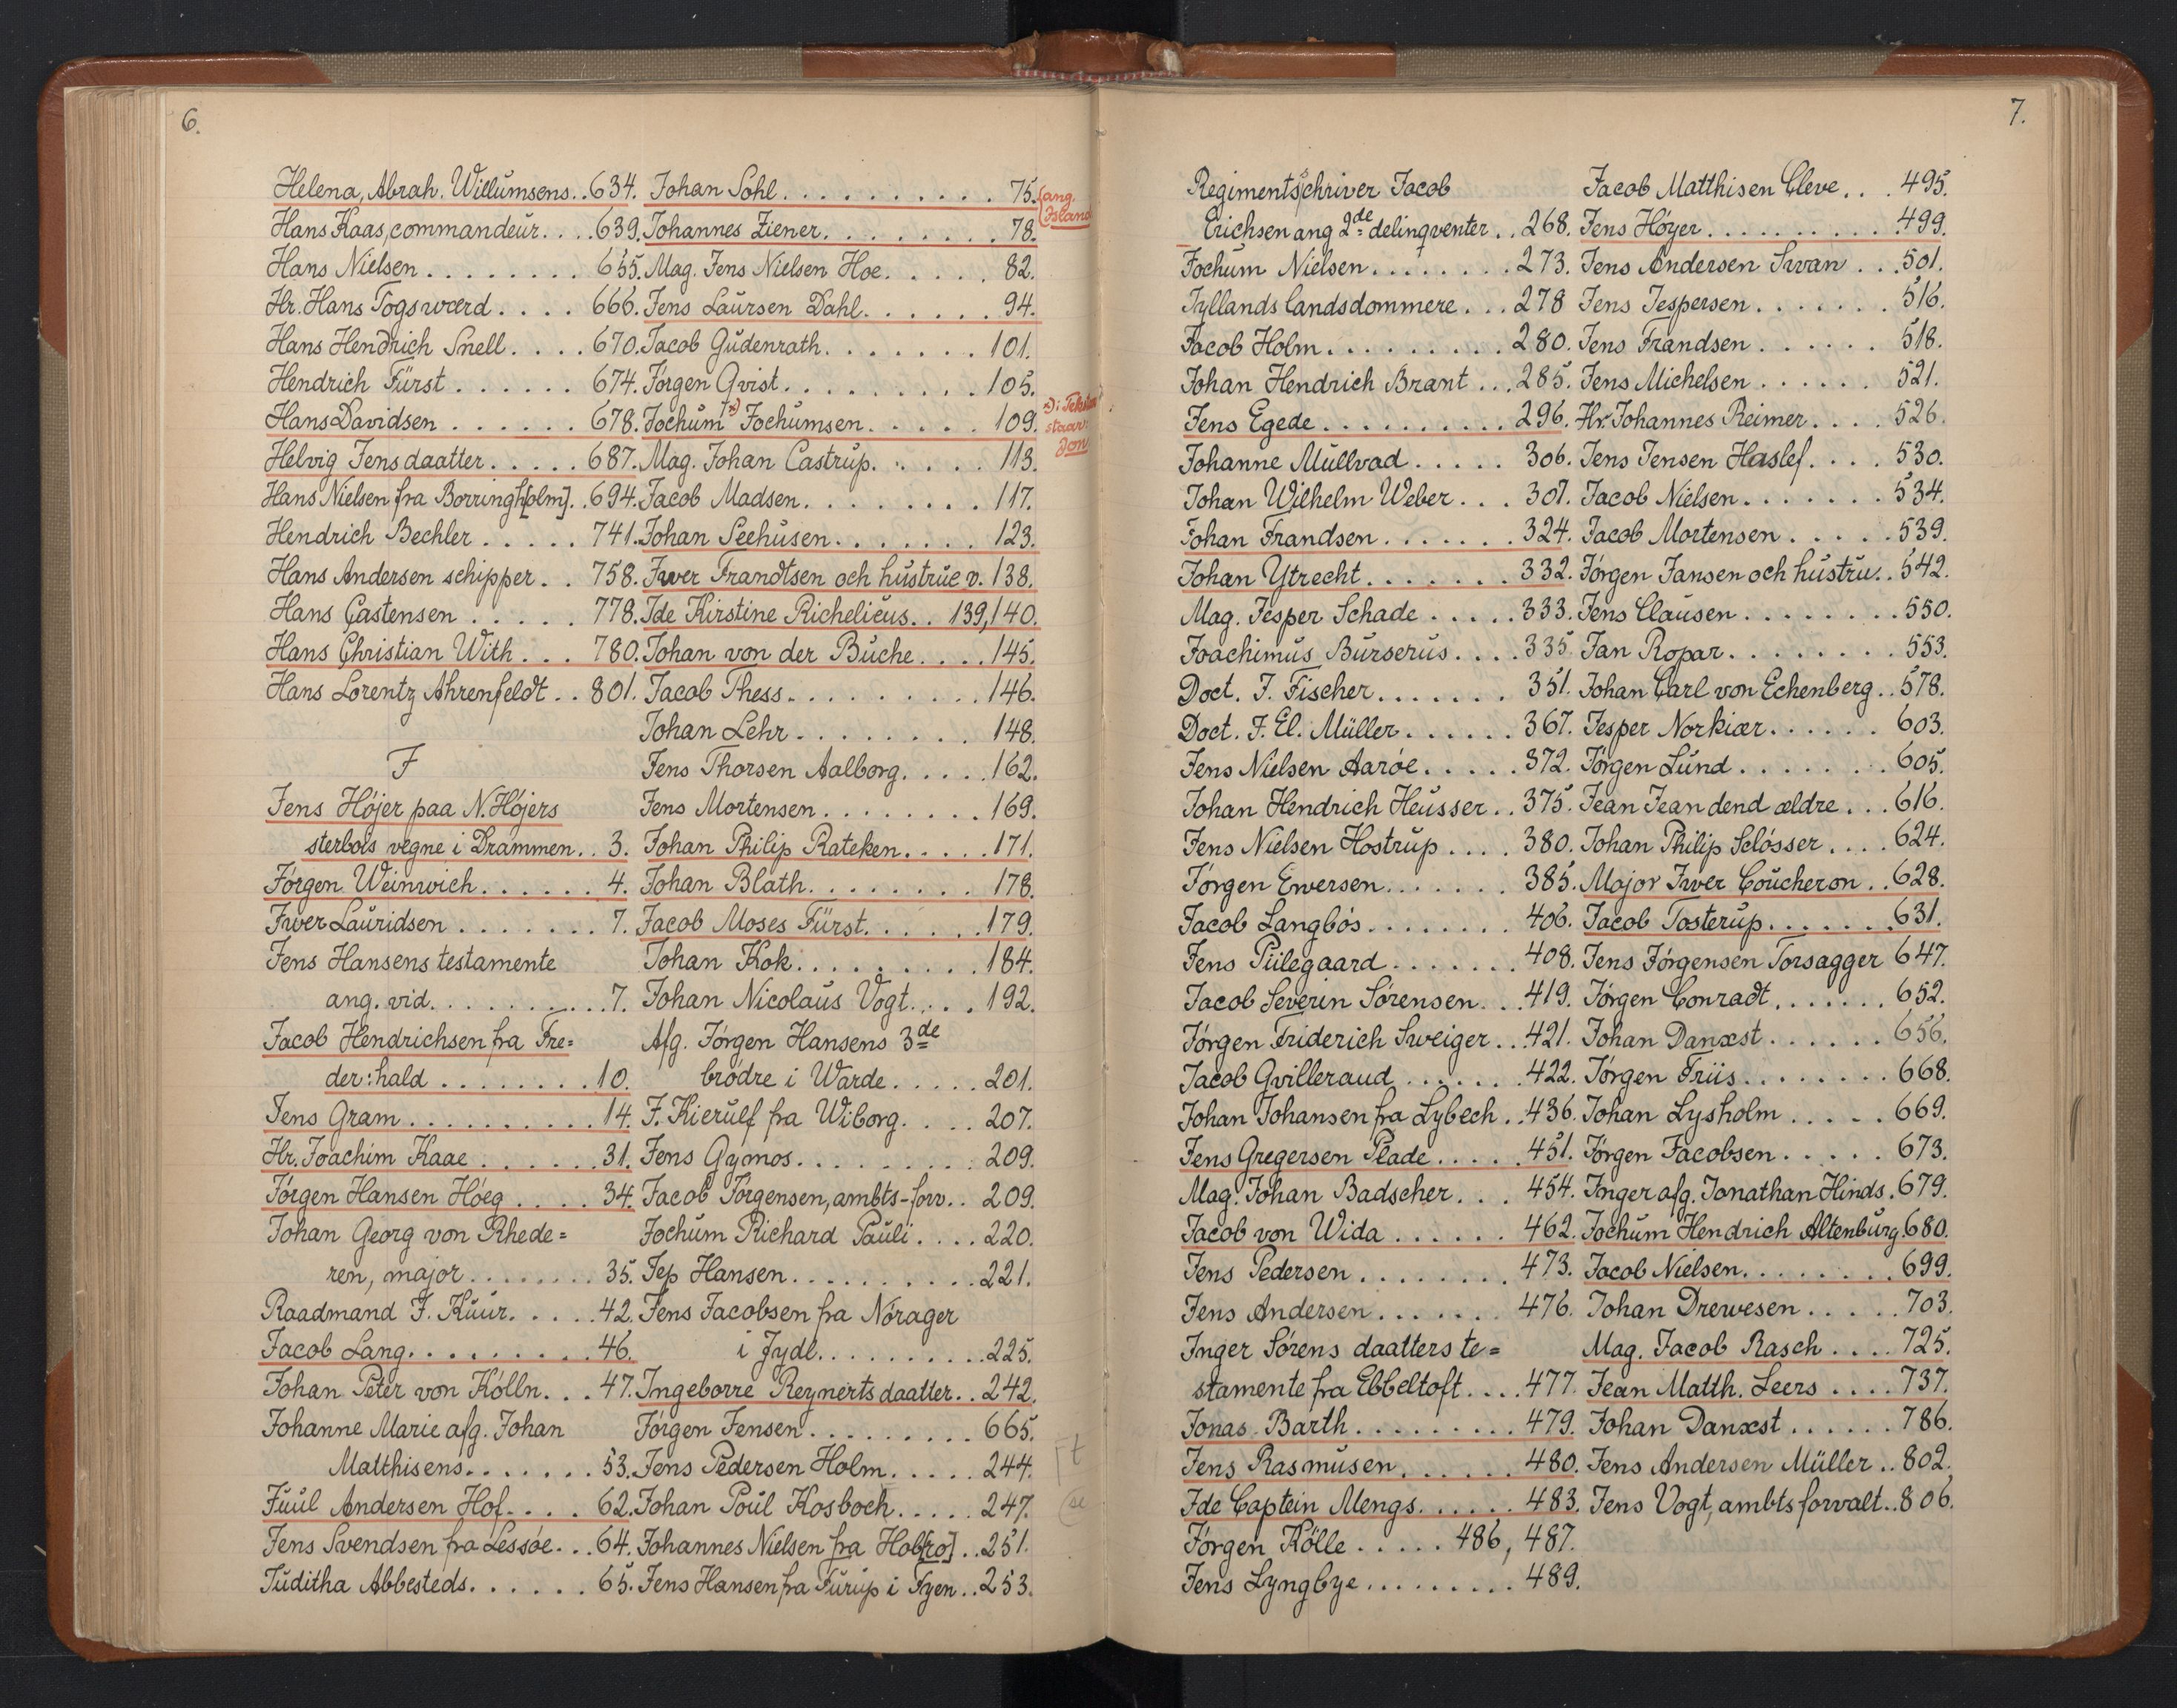 6.
Helena, Abrah. Willumsens..634.
Hans Kaas, commandeur....639.
Hans Nielsen........655.
Hr. Hans Togsværd....666.
Hans Hendrich Snell....670.
Hendrich Fürst......674.
Hans Davidsen......678.
Helvig Jensdaatter.....687.
Hans Nielsen fra Borringh[olm]..694.
Hendrich Bechler.....741.
Hans Andersen schipper..758.
Hans Castensen.....778.
Hans Christian With...780.
Hans Lorentz Ahrenfeldt..801.
J
Jens Höjer paa N. Höjers
sterbois vegne i Drammen..3.
Jörgen Weinwich......4.
Iwer Lauridsen.......7.
Jens Hansens testamente
ang. vid..........7.
Jacob Hendrichsen fra Fre=
der:hald........10.
Jens Gram..........14.
Hr. Joachim Kaae......31.
Jörgen Hansen Höeg....34.
Johan Georg von Rhede=
ren, major........35.
Raadmand J. Kuur.....42.
Jacob Lang.........46.
Johan Peter von Kölln...47.
Johanne Marie afg. Johan
Matthisens.......53.
Juul Andersen Hof....62.
Jens Svendsen fra Lessöe...64.
Juditha Abbesteds......65.
Johan Sohl..........75.
(ang.
Island
Johannes Ziener.........78.
Mag. Jens Nielsen Hoe.....82.
Jens Laursen Dahl......94.
Jacob Gudenrath.......101.
Jörgen Qvist.........105.
Jochum †*) Jochumsen.....109.
*) i Teksten
staar:
Jon
Mag. Johan Castrup.....113.
Jacob Madsen........117.
Johan Seehusen.......123.
Iwer Frandtsen och hustrue v. 138.
Ide Kirstine Richelieus..139,140.
Johan von der Buche....145.
Jacob Thess.........146.
Johan Lehr........148.
Jens Thorsen Aalborg.....162.
Jens Mortensen........169.
Johan Philip Rateken.....171.
Johan Blath........178.
Jacob Moses Fürst......179.
Johan Kok.........184.
Johan Nicolaus Vogt....192.
Afg. Jörgen Hansens 3de
brödre i Warde.....201.
J. Kierulf fra Wiborg....207.
Jens Gymos.........209.
Jacob Jörgensen, ambts-forv..209.
Jochum Richard Pauli....220.
Jep Hansen..........221.
Jens Jacobsen fra Nörager
i Jydl..........225.
Ingeborre Reynerts daatter..242.
Jörgen Jensen.........665.
Jens Pedersen Holm.....244.
Johan Poul Kosboch.....247.
Johannes Nielsen fra Hob[ro]..251.
Jens Hansen fra Furup i Fyen..253.
t
se
7.
Regimentschriver Jacob
Erichsen ang 2de delinqventer..268.
Jochum Nielsen........273.
Jyllands landsdommere...278
Jacob Holm.........280.
Johan Hendrich Brant...285.
Jens Egede..........296.
Johanne Mullvad.....306.
Johan Wilhelm Weber...307.
Johan Frandsen.......324.
Johan Ytrecht.......332.
Mag. Jesper Schade.....333.
Joachimus Burserus....335.
Doct. J. Fischer.......351.
Doct. J. El. Müller......367.
Jens Nielsen Aaröe.....372.
Johan Hendrich Heusser..375.
Jens Nielsen Hostrup....380.
Jörgen Ewersen.......385.
Jacob Langbös........406.
Jens Piilegaard.......408.
Jacob Severin Sörensen...419.
Jörgen Friderich Sweiger...421.
Jacob Qvilleraud.......422.
Johan Johansen fra Lybech..436.
Jens Gregersen Plade.....451.
Mag. Johan Badscher...454.
Jacob von Wida......462.
Jens Pedersen........473.
Jens Andersen.......476.
Inger Sörens daatters te=
stamente fra Ebbeltoft....477.
Jonas Barth.........479.
Jens Rasmusen......480.
Ide Captein Mengs......483.
Jörgen Kölle.....486, 487.
Jens Lyngbye.........489.
Jacob Matthisen Cleve...495.
Jens Höyer..........499.
Jens Andersen Swan...501.
Jens Jespersen.......516.
Jens Frandsen......518.
Jens Michelsen......521.
Hr. Johannes Reimer....526.
Jens Jensen Haslef....530.
Jacob Nielsen.......534.
Jacob Mortensen.....539.
Jörgen Jansen och hustru..542.
Jens Clausen........550.
Jan Ropar........553.
Johan Carl von Echenberg..578.
Jesper Norkiær......603.
Jörgen Lund........605.
Jean Jean dend ældre...616.
Johan Philip Slösser....624.
Major Iwer Coucheron..628.
Jacob Tosterup.......631.
Jens Jörgensen Torsagger 647.
Jörgen Conradt......652.
Johan Danxst......656.
Jörgen Friis........668.
Johan Lysholm.....669.
Jörgen Jacobsen.....673.
Inger afg. Jonathan Hinds.679.
Jochum Hendrich Altenburg.680.
Jacob Nielsen........699.
Johan Drewesen.....703.
Mag. Jacob Rasch....725.
Jean Matth. Leers....737.
Johan Danxst......786.
Jens Andersen Müller..802.
Jens Vogt, ambtsforvalt..806.